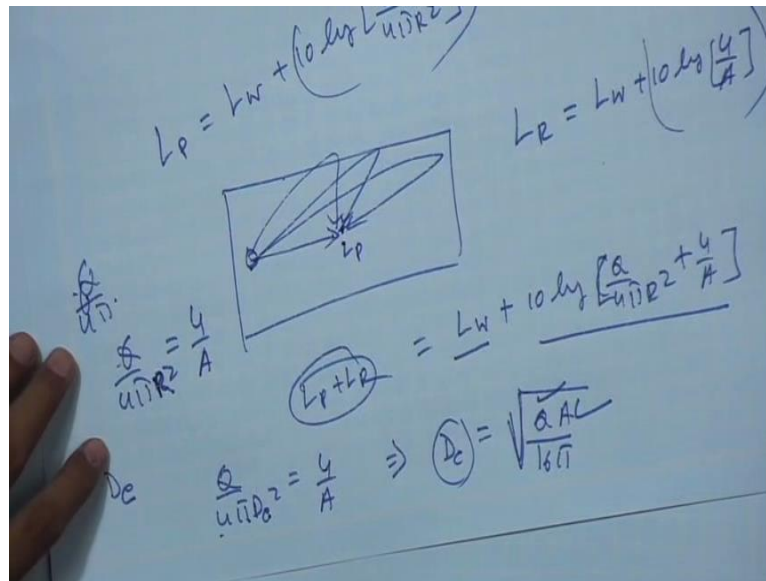 L_P = L_W + (10 log [Q/4πR²])
L_R = L_W + (10 log [4/A])
L_P
Q/4π.
Q/4πR² = 4/A
L_P + L_R = L_W + 10 log [Q/4πR² + 4/A]
D_c Q/4πD_c² = 4/A ⇒ D_c = √QA/16π